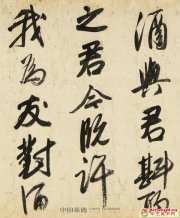 酒與君斟酌
之君今既許
我為友對酒
中国嘉德